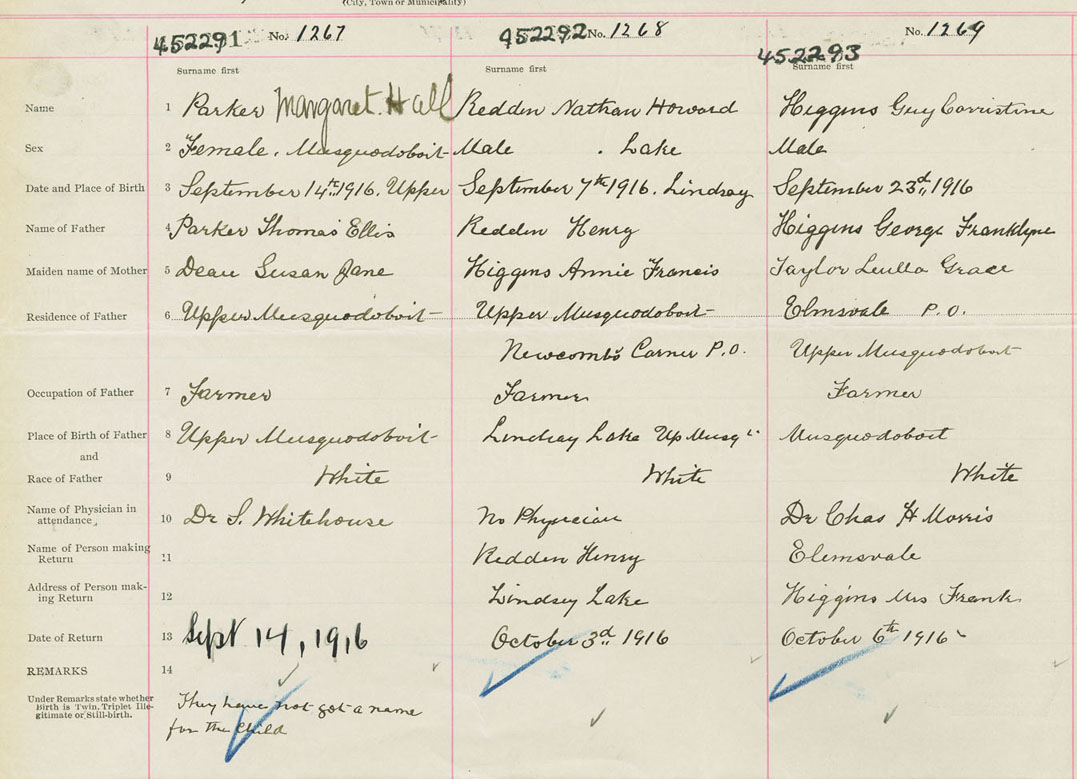 (City, Town or Municipality)
452291 No. 1267 452292 No. 1268 452293 No. 1269
Surname first Surname first Surname first
Name 1 Parker Margaret. Hall Redden Nathan Howard Higgins Guy Corristine
Sex 2 Female. Musquodoboit Male . Lake Male
Date and Place of Birth 3 September 14th 1916. Upper September 7th 1916. Lindsay September 23d 1916
Name of Father 4 Parker Thomas Ellis Redden Henry Higgins George Franklyne
Maiden name of Mother 5 Dean Susan Jane Higgins Annie Francis Taylor Luella Grace
Residence of Father 6 Upper Musquodoboit Upper Musquodoboit Elmsvale P.O.
Newcomb's Corner P.O. Upper Musquodoboit
Occupation of Father 7 Farmer Farmer Farmer
Place of Birth of Father 8 Upper Musquodoboit Lindsay Lake Up Musq" Musquodoboit
and
Race of Father 9 White White White
Name of Physician in
attendance, 10 Dr S. Whitehouse No Physician Dr Chas H Morris
Name of Person making
Return 11 Redden Henry Elemsvale
Address of Person mak-
ing Return 12 Lindsey Lake Higgins Mrs Frank
Date of Return 13 Sept 14, 1916 October 3d 1916 October 6th 1916
REMARKS 14
Under Remarks state whether
Birth is Twin, Triplet Ille-
gitimate or Still-birth.
They have not got a name
for the child